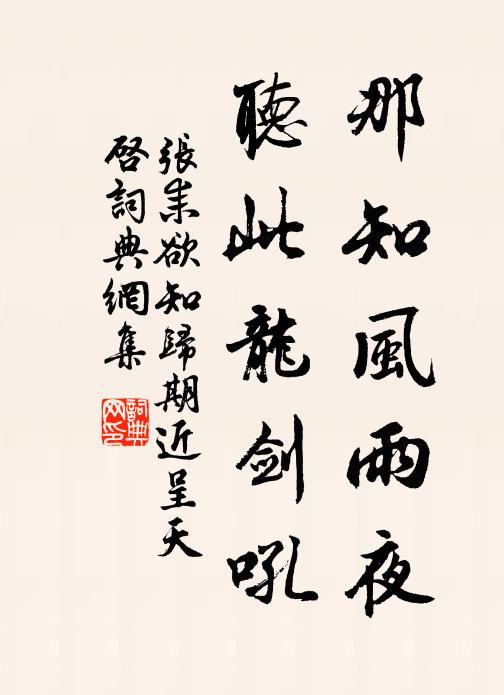 那知風雨夜
聽此龍劍吼
張耒欲知歸期近呈天
啓詞典網集
詞典
网印